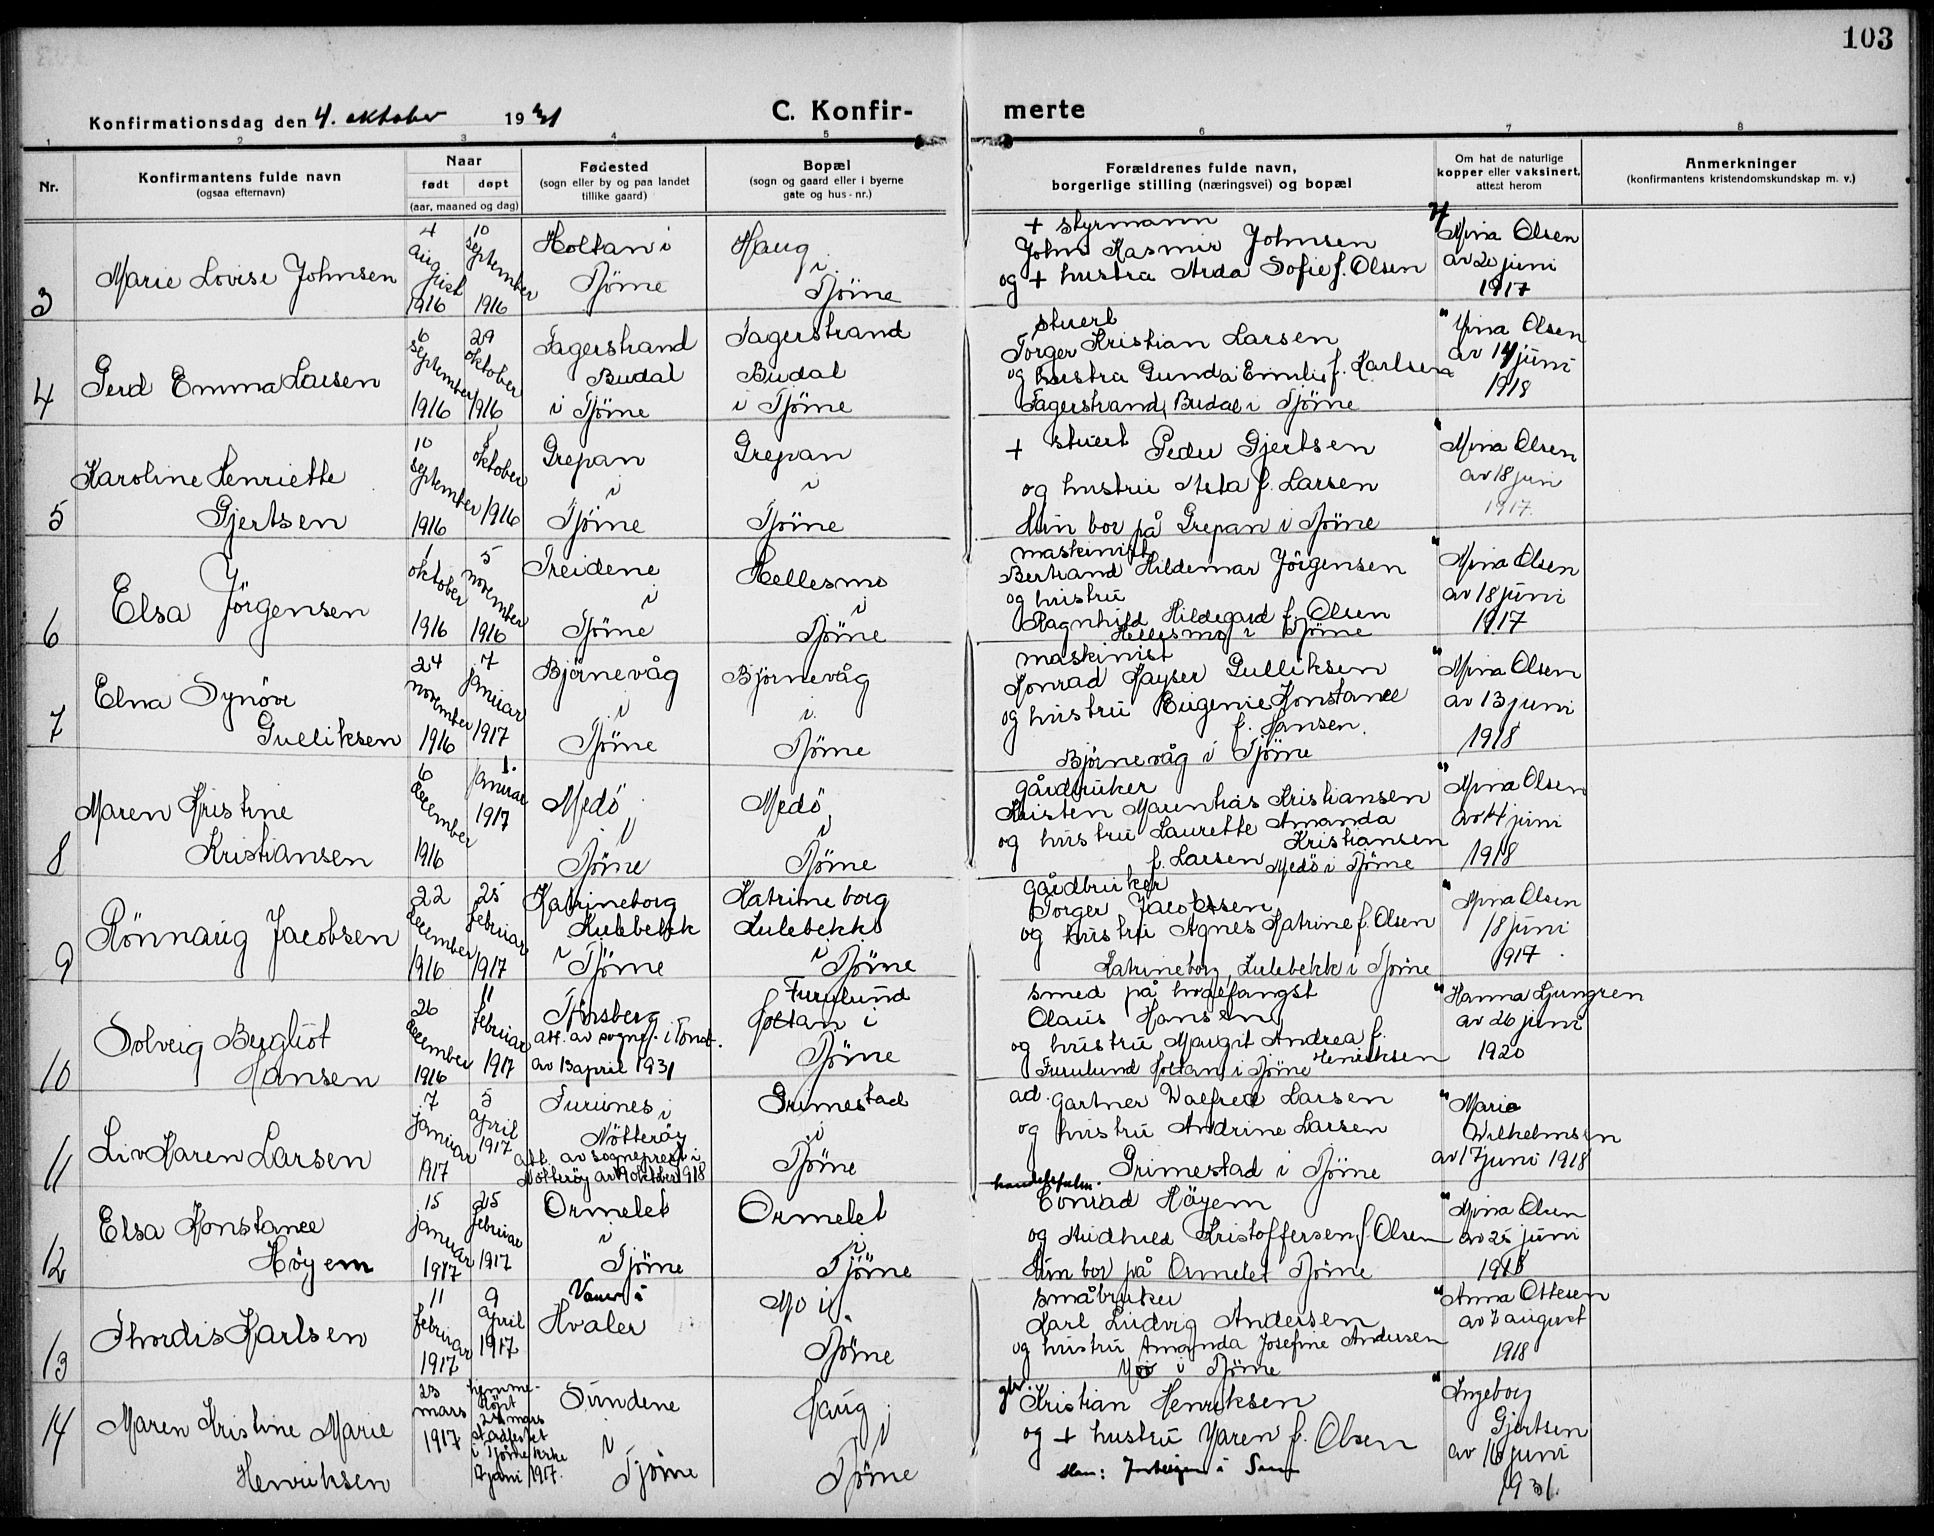 103
Konfirmationsdag den 4. oktober 1931
C. Konfir- merte
1 2 3 4 5 6 7 8
Nr.
Konfirmantens fulde navn
(ogsaa efternavn)
Naar
født døpt
(aar, maaned og dag)
Fødested
(sogn eller by og paa landet
tillike gaard)
Bopæl
(sogn og gaard eller i byerne
gate og hus-nr.)
Forældrenes fulde navn,
borgerlige stilling (næringsvei) og bopæl
Om hat de naturlige
kopper eller vaksinert,
attest herom
Anmerkninger
(konfirmantens kristendomskundskap m. v.)
3
Marie Lovise Johnsen
4
august
1916
10
september
1916
Holtan i
Tjöme
Haug
i
Tjöme
+ styrmann
John Kasmir Johnsen
og + hustru Arda Sofie f. Olsen
Mina Olsen
av 20 juni
1917
4
Gerd Emma Larsen
6
september
1916
29
oktober
1916
Fagerstrand
Budal
i Tjöme
Fagerstrand
Budal
i Tjöme
stuert
Torger Kristian Larsen
og hustru Gunda Emilie f. Karlsen
Fagerstrand, Budal i Tjöme
" Mina Olsen
av 14 juni
1918
5
Karoline Henriette
Gjertsen
10
september
1916
8
oktober
1916
Grepan
i
Tjöme
Grepan
i
Tjöme
+ stuert Peder Gjertsen
og hustru Asta f. Larsen
Hun bor på Grepan i Tjöme
" Mina Olsen
av 18 juni
1917.
6
Elsa Jörgensen
1
oktober
1916
5
november
1916
Treidene
i
Tjöme
Hellesmo
i
Tjöme
maskinist
Bertrand Hildemar Jörgensen
og hustru
Ragnhild Hildegard f. Olsen
Hellesmo i Tjöme
" Mina Olsen
av 18 juni
1917
7
Elna Synöve
Gulliksen
24
november
1916
7
januar
1917
Björnevåg
i
Tjöme
Björnevåg
i
Tjöme
maskinist
Konrad Kayser Gulliksen
og hustru Eugenie Konstance
f. Hansen.
Björnevåg i Tjöme
" Mina Olsen
av 13 juni
1918
8
Maren Kristine
Kristiansen
6
december
1916
1.
januar
1917
Medö
i
Tjöme
Medö
i
Tjöme
gårdbruker
Kristen Marenhas Kristiansen
og hustru Laurette Amanda
Kristiansen
f. Larsen Medö i Tjöme
" Mina Olsen
av 14 juni
1918
9
Rönnaug Jacobsen
22
december
1916
25
februar
1917
Katrineborg
Kulebekk
i Tjöme
Katrineborg
Kulebekk
i Tjöme
gårdbruker
Torger Jacobsen
og hustru Agnes Katrine f. Olsen
Katrineborg, Kulebekk i Tjöme
" Mina Olsen
18 juni
1917
10
Solveig Bergliot
Hansen
26
december
1916
11
februar
1917
Tönsberg
att. av sognepr. i Tönsb.
av 13 april 1931
Furulund
Holtan i
Tjöme
smed på hvalfangst
Olaus Hansen
og hustru Margit Andrea f.
Henriksen
Furulund Holtan i Tjöme
" Hanna Ljungren
av 26 juni
1920
11
Liv Karen Larsen
7
januar
1917
5
april
1917
Furunes i
Nötteröy
att. av sogneprest i
Nötteröy av 19 oktober 1918
Grimestad
i
Tjöme
ad. gartner Walfred Larsen
og hustru Andrine Larsen
Grimestad i Tjöme
" Marie
Wilhelmsen
av 17 juni 1918
12
Elsa Konstance
Høyem
15
januar
1917
25
februar
1917
Ormelet
i
Tjöme
Ormelet
i
Tjöme
handelsfulm.
Conrad Höyem
og Aidhild Kristoffersen f. Olsen
Hun bor på Ormelet Tjöme
" Mina Olsen
av 25 juni
1918
13
Thordis Karlsen
11
februar
1917
9
april
1917
Hvaler
Mo i
Tjöme
småbruker
Karl Ludvig Andersen
og hustru Amanda Josefine Andersen
Mo i Tjöme
" Anna Ottesen
av 7 august
1918
14
Maren Kristine Marie
Henriksen
23
mars
1917
hjemme-
döpt
24 mars
stadfestet
i Tjöme kirke
17 juni 1917.
Sundene
i
Tjöme
Haug
i
Tjöme
gbr. Kristian Henriksen
og + hustru Maren f. Olsen
" Ingeborg
Gjertsen
av 16 juni
1931.